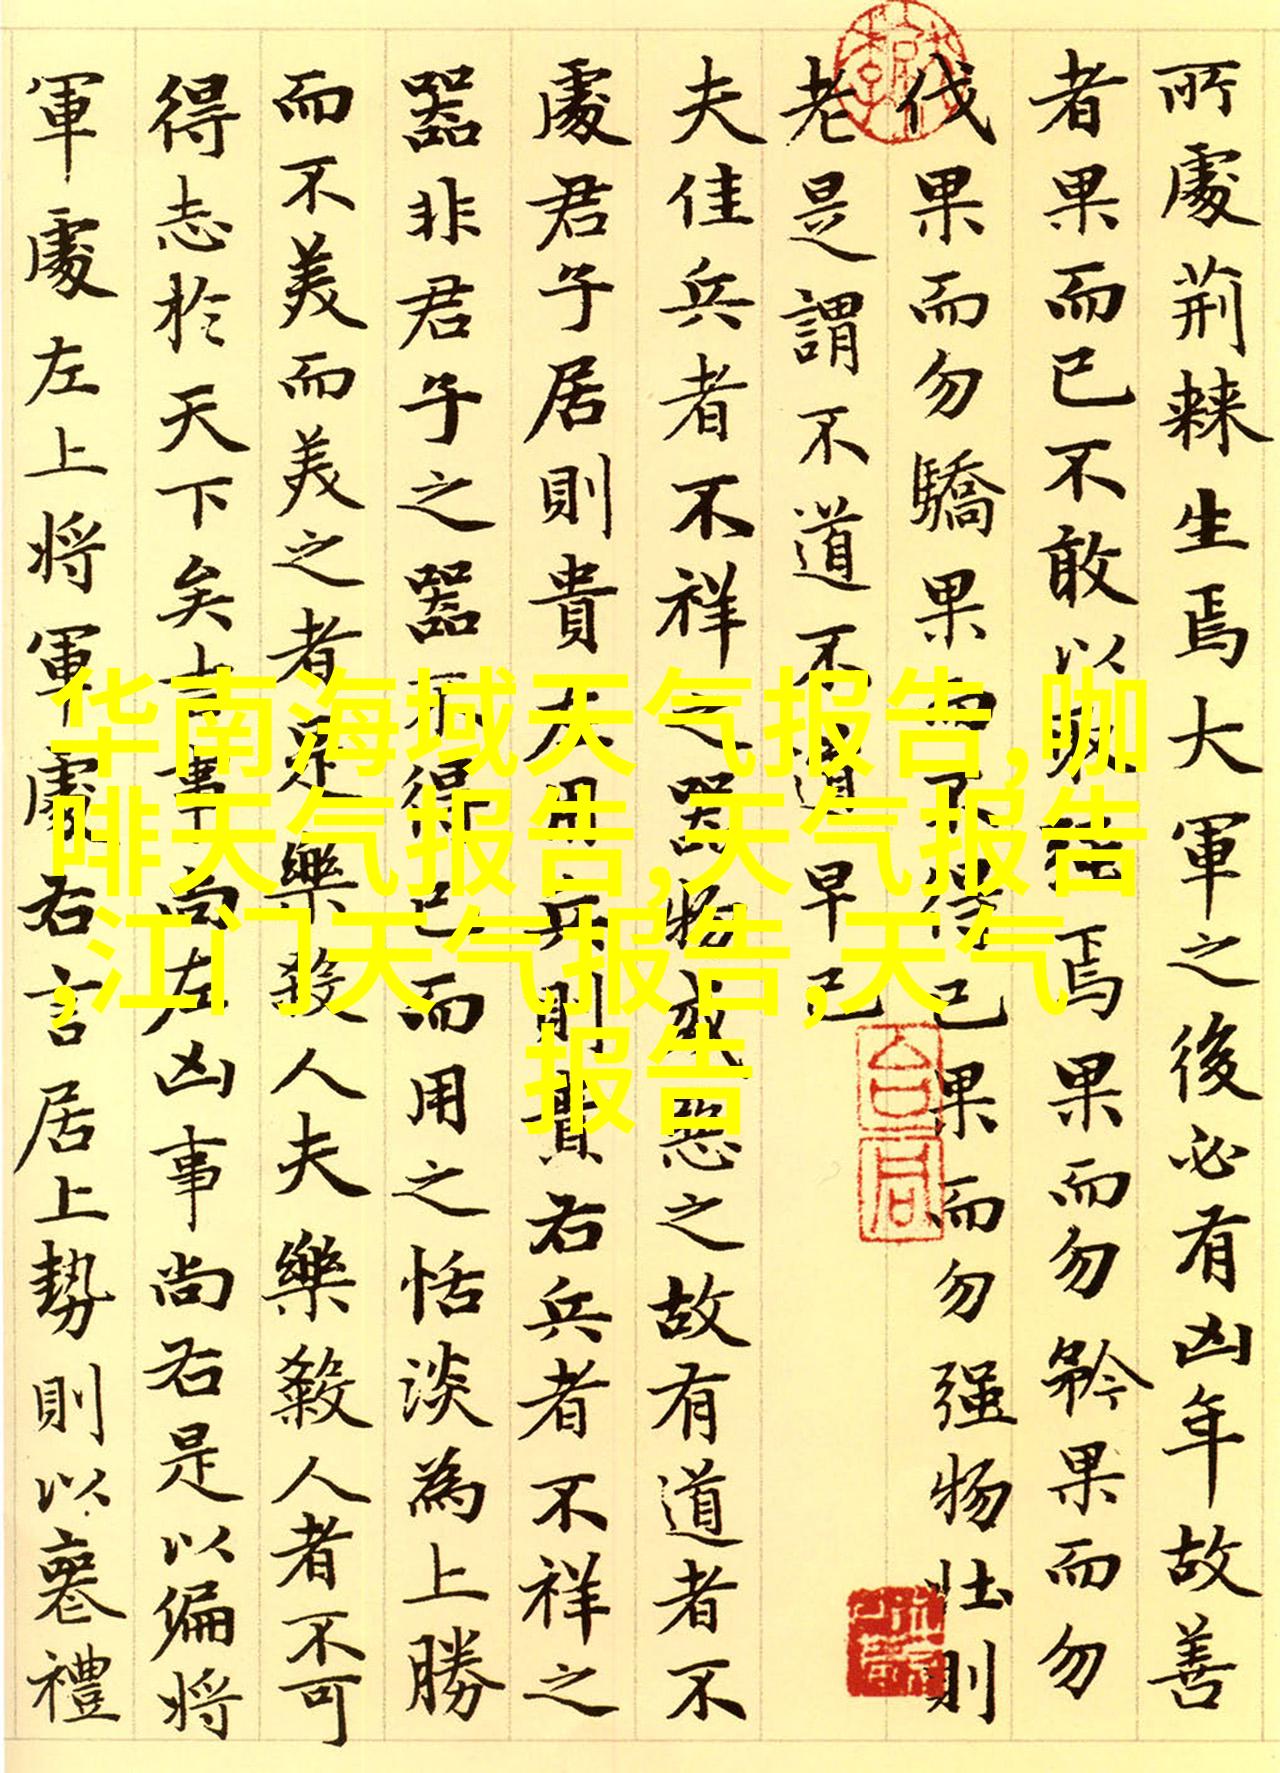 所處荊棘生焉大軍之後必有凶年故善
者果而已不敢以取強焉果而勿矜果而勿
伐果而勿驕果而不得已果而勿强物壮則
老是謂不道不道早已
夫佳兵者不祥之器物或惡之故有道者不
處君子居則貴左用兵則貴右兵者不祥之
器非君子之器不得已而用之恬淡為上勝
而不美而美之者是樂殺人夫樂殺人者不可
得志於天下矣吉事尚左凶事尚右是以偏將
軍處左上將軍處右言居上勢則以喪禮
华南海域天气报告,咖
啡天气报告,天气报告
,江门天气报告,天气
报告